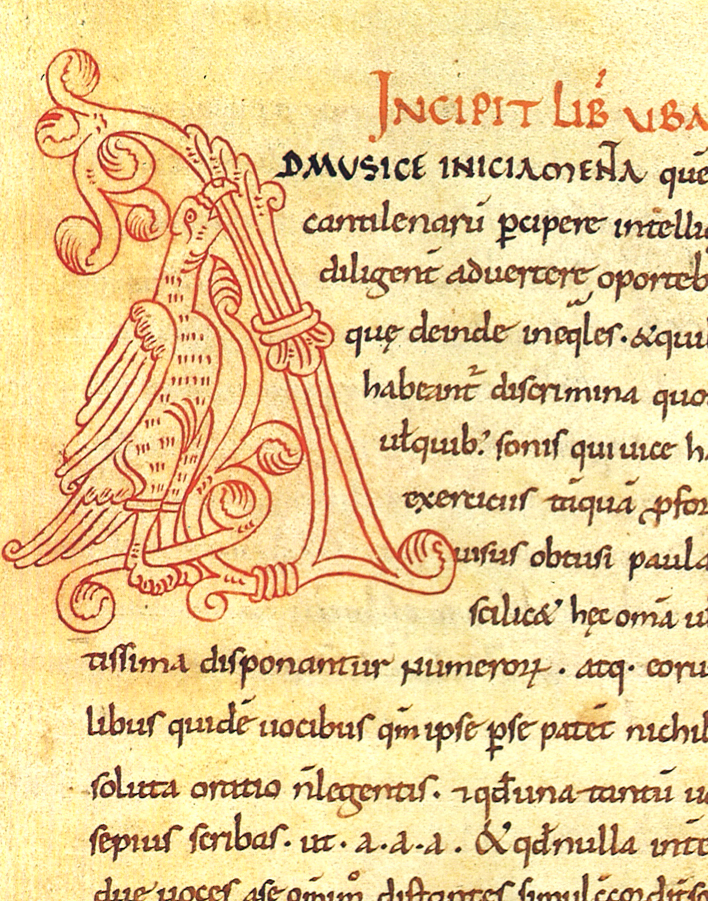 INCIPIT LIB̄ UBA
ADMUSICE INICIAMEÑA quē
cantilenarū ꝑcipere intelli
diligent̄ aduertere oporteb
quę deinde ineq̄les · &qui
habeant̄ discrimina quo
uł quib; sonis qui uice h
exerciciis tāquā ꝓfor
uisus obtusi paula
scilic& hęc om̄a u
tissima disponantur numeroꝝ · atq · eoru
libus quidē uocibus qm̄ ipse ꝑse patet nichil
soluta oratio n̄legentis · ⁊qđuna tantū u
sepius scribas · ut · a · a · a · &qđnulla inte
due uoces distantes simul